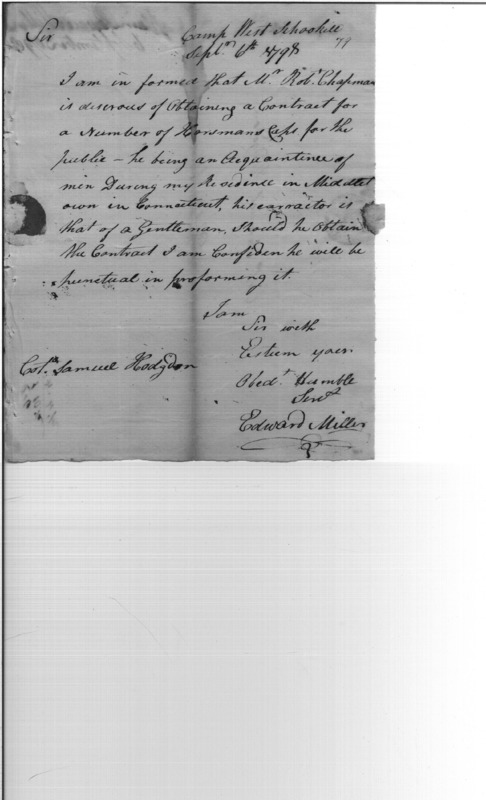 Camp West Schoolkill
Sir Septr 6th 1798
79
I am in formed that Mr Robt Chapman
is deserous of Obtaining a Contract for
a Number of Horsmans Caps for the
public – he being an Acquaintence of
mien During my Residense in Middlet
own in Connecticut, his carractor is
that of a Gentleman, Should he Obtain
the Contract I am Confiden he will be
punctual in proforming it.
I am
Sir with
Esteem your
Obedt Humble
Servt
Edward Miller
Col. Samuel Hodgdon